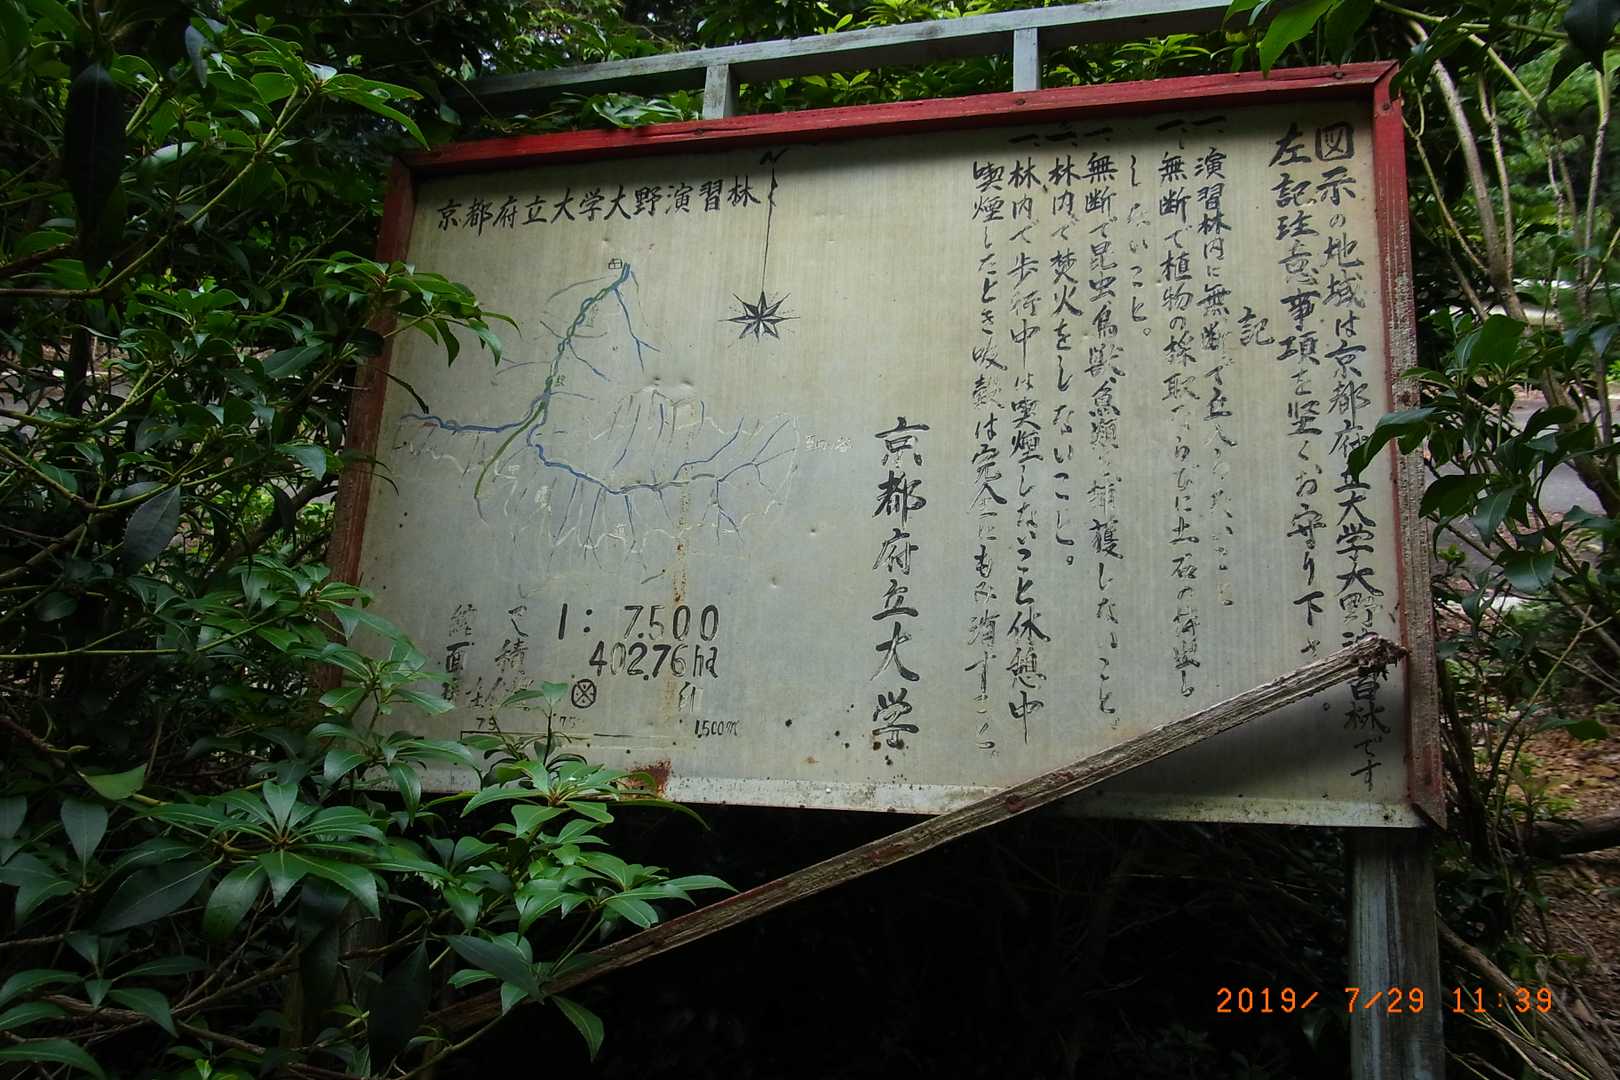 図示の地域は京都府立大学大野演習林です
左記注意事項を堅くお守り下さ。
記
一、演習林内に無断で立入
一、無断で植物の採取ならびに土石の
しないこと。
一、無断で昆虫鳥獣魚類 捕獲しないこと。
一、林内で焚火をしないこと。
一、林内で歩行中は喫煙しないこと休憩中
喫煙したとき吸殻は完全にもみ消すこと。
京都府立大学
京都府立大学大野演習林
N
1: 7.500
面積 402.76ha
1,500m
2019/ 7/29 11:39